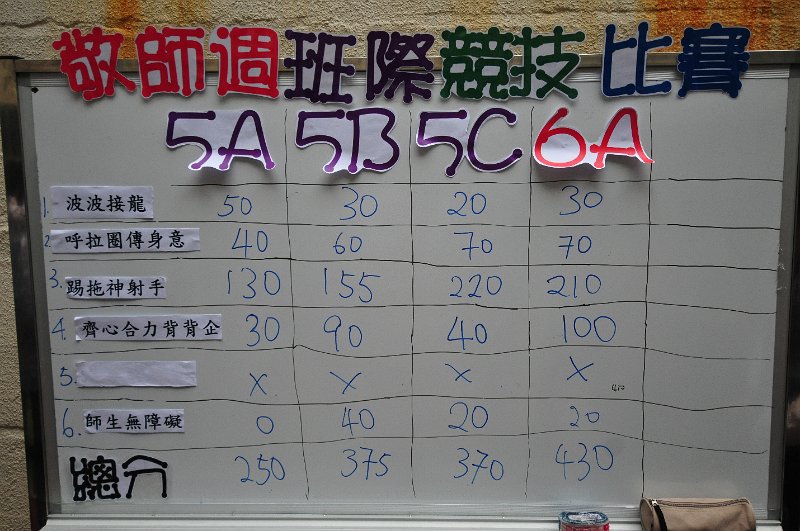 敬師週班際競技比賽
5A 5B 5C 6A
1. 波波接龍 50 30 20 30
2. 呼拉圈傳身意 40 60 70 70
3. 踢拖神射手 130 155 220 210
4. 齊心合力背背企 30 90 40 100
5. x x x x
6. 師生無障礙 0 40 20 20
總分 250 375 370 430